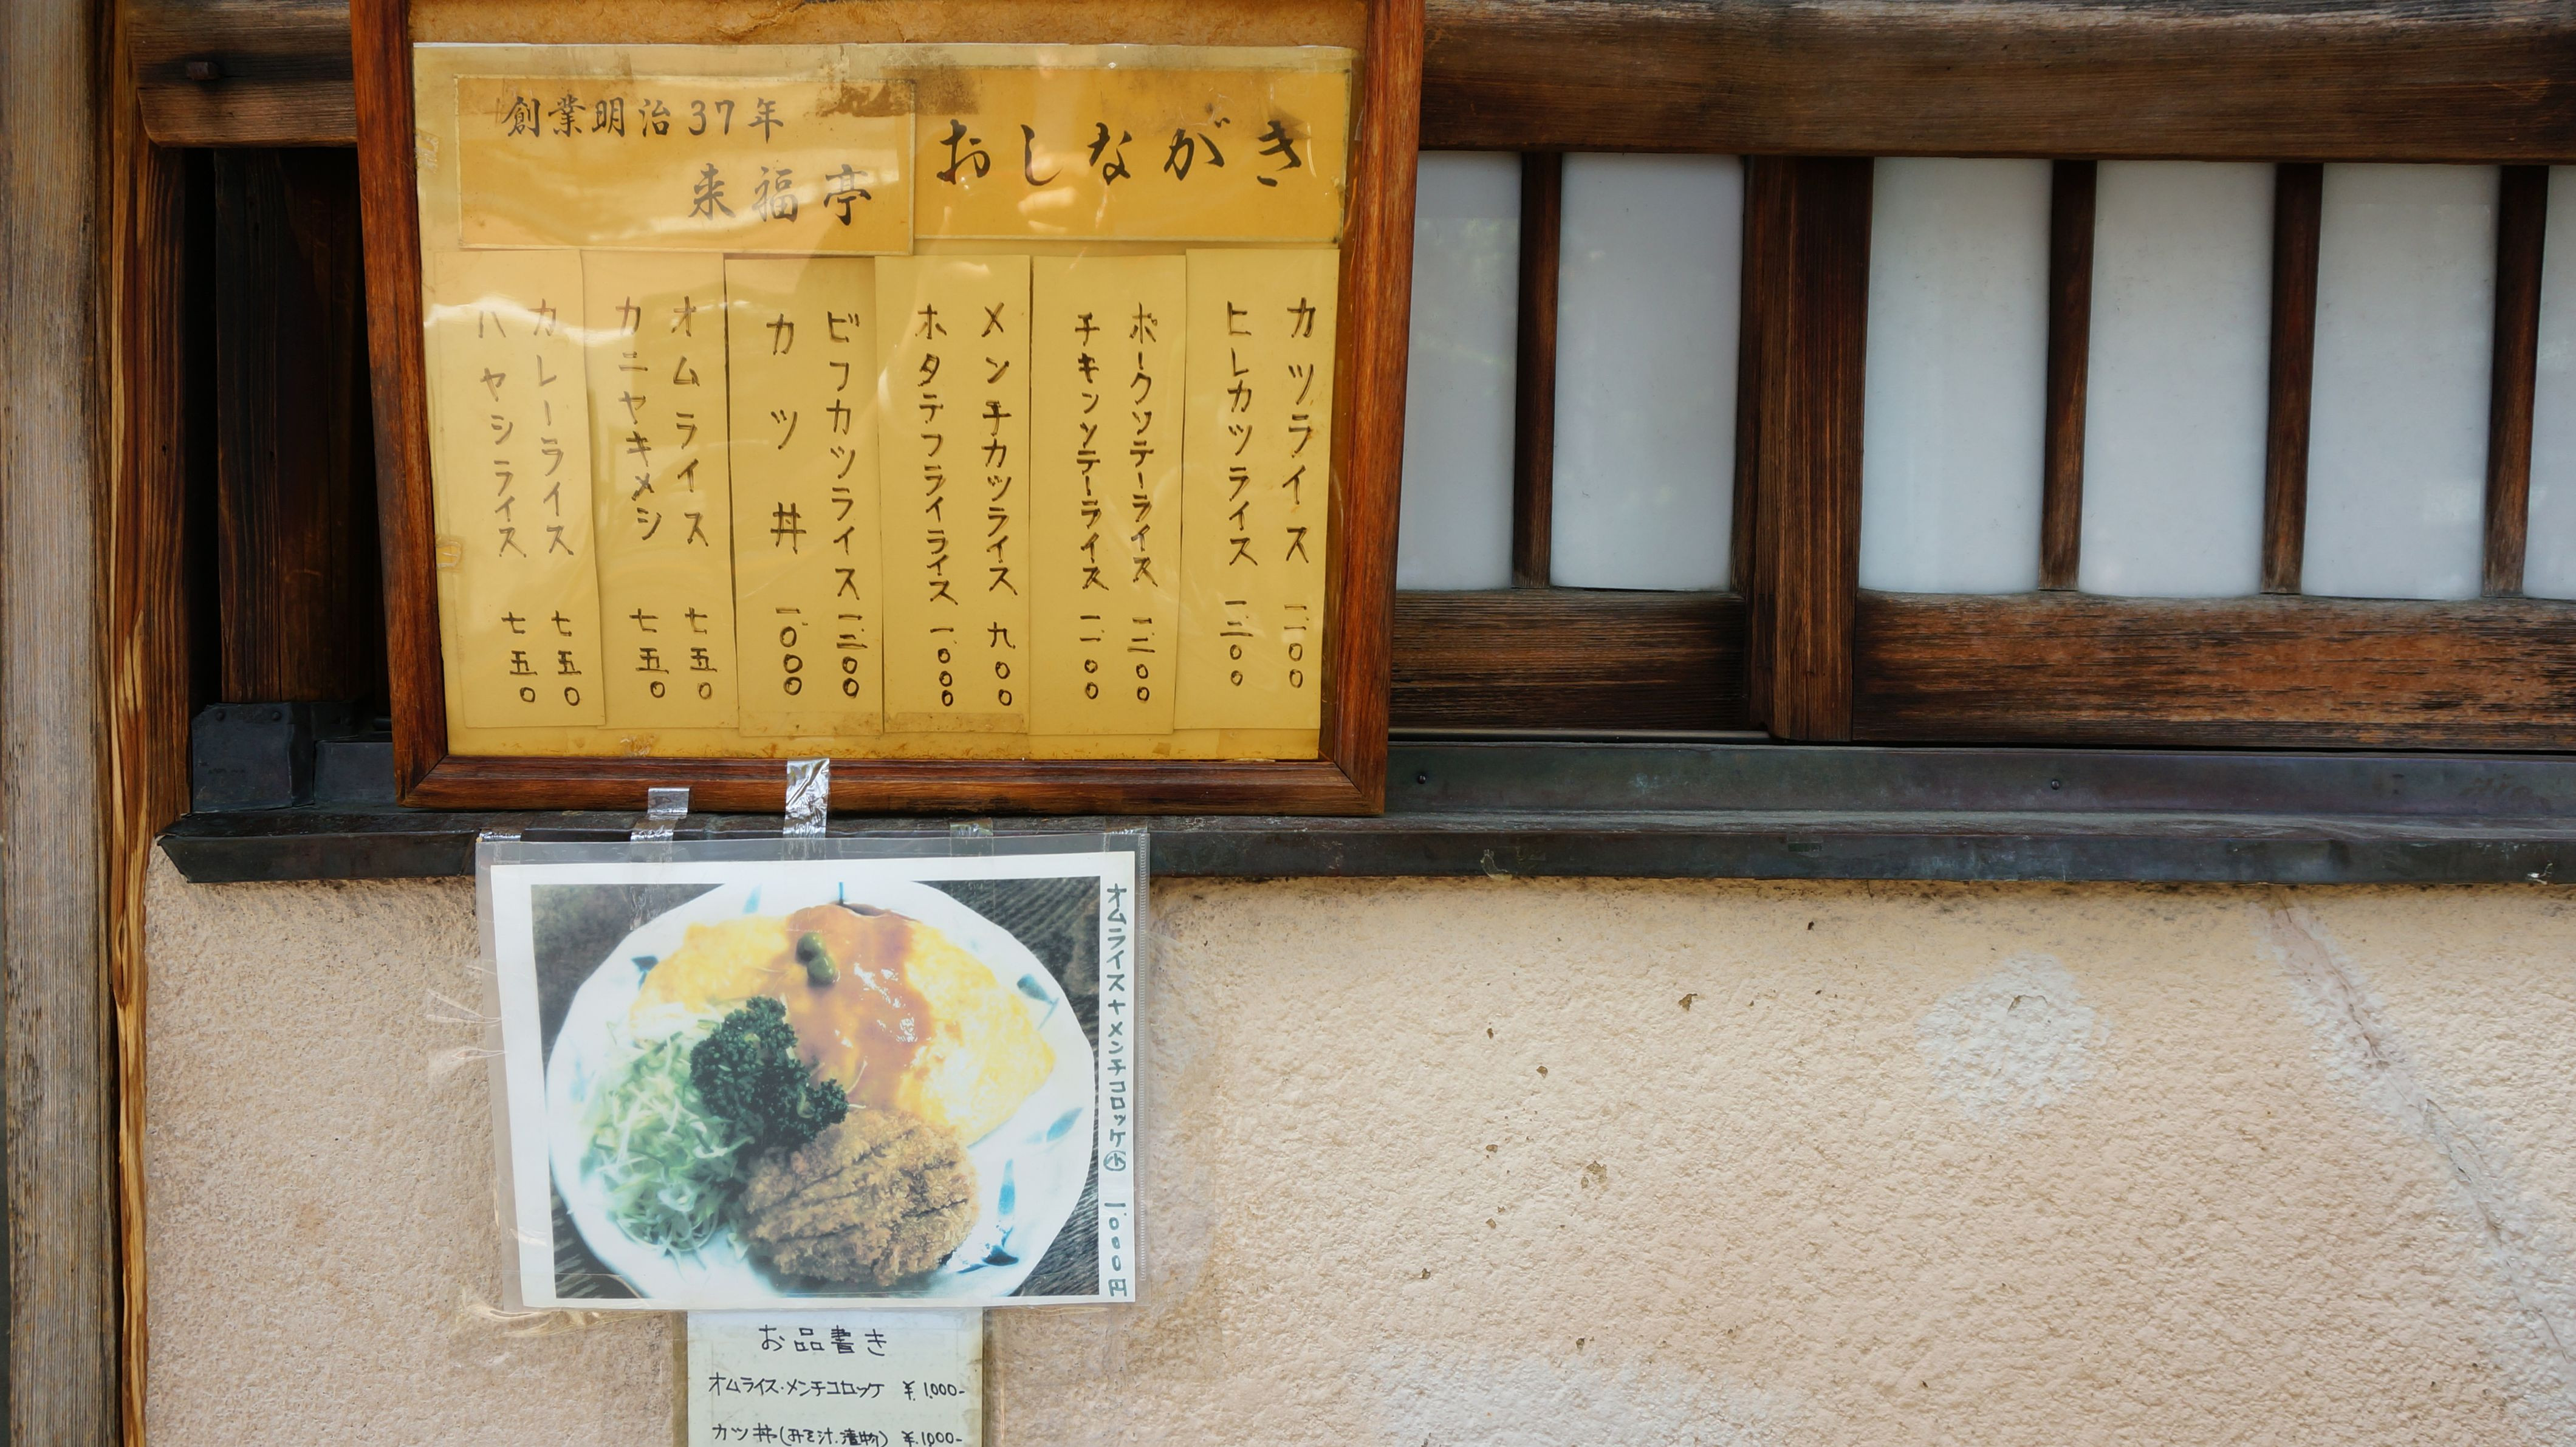 おしながき
創業明治37年
来福亭
カツライス 一二〇〇
ヒレカツライス 一三〇〇
ポークソテーライス 一三〇〇
チキンソテーライス 一一〇〇
メンチカツライス 九〇〇
ホタテフライライス 一〇〇〇
ビフカツライス 一三〇〇
カツ丼 一〇〇〇
オムライス 七五〇
カニヤキメシ 七五〇
カレーライス 七五〇
ハヤシライス 七五〇
オムライス+メンチコロッケ㊙ 一〇〇〇円
お品書き
オムライス・メンチコロッケ ¥1,000-
カツ丼(みそ汁.漬物) ¥1,000-